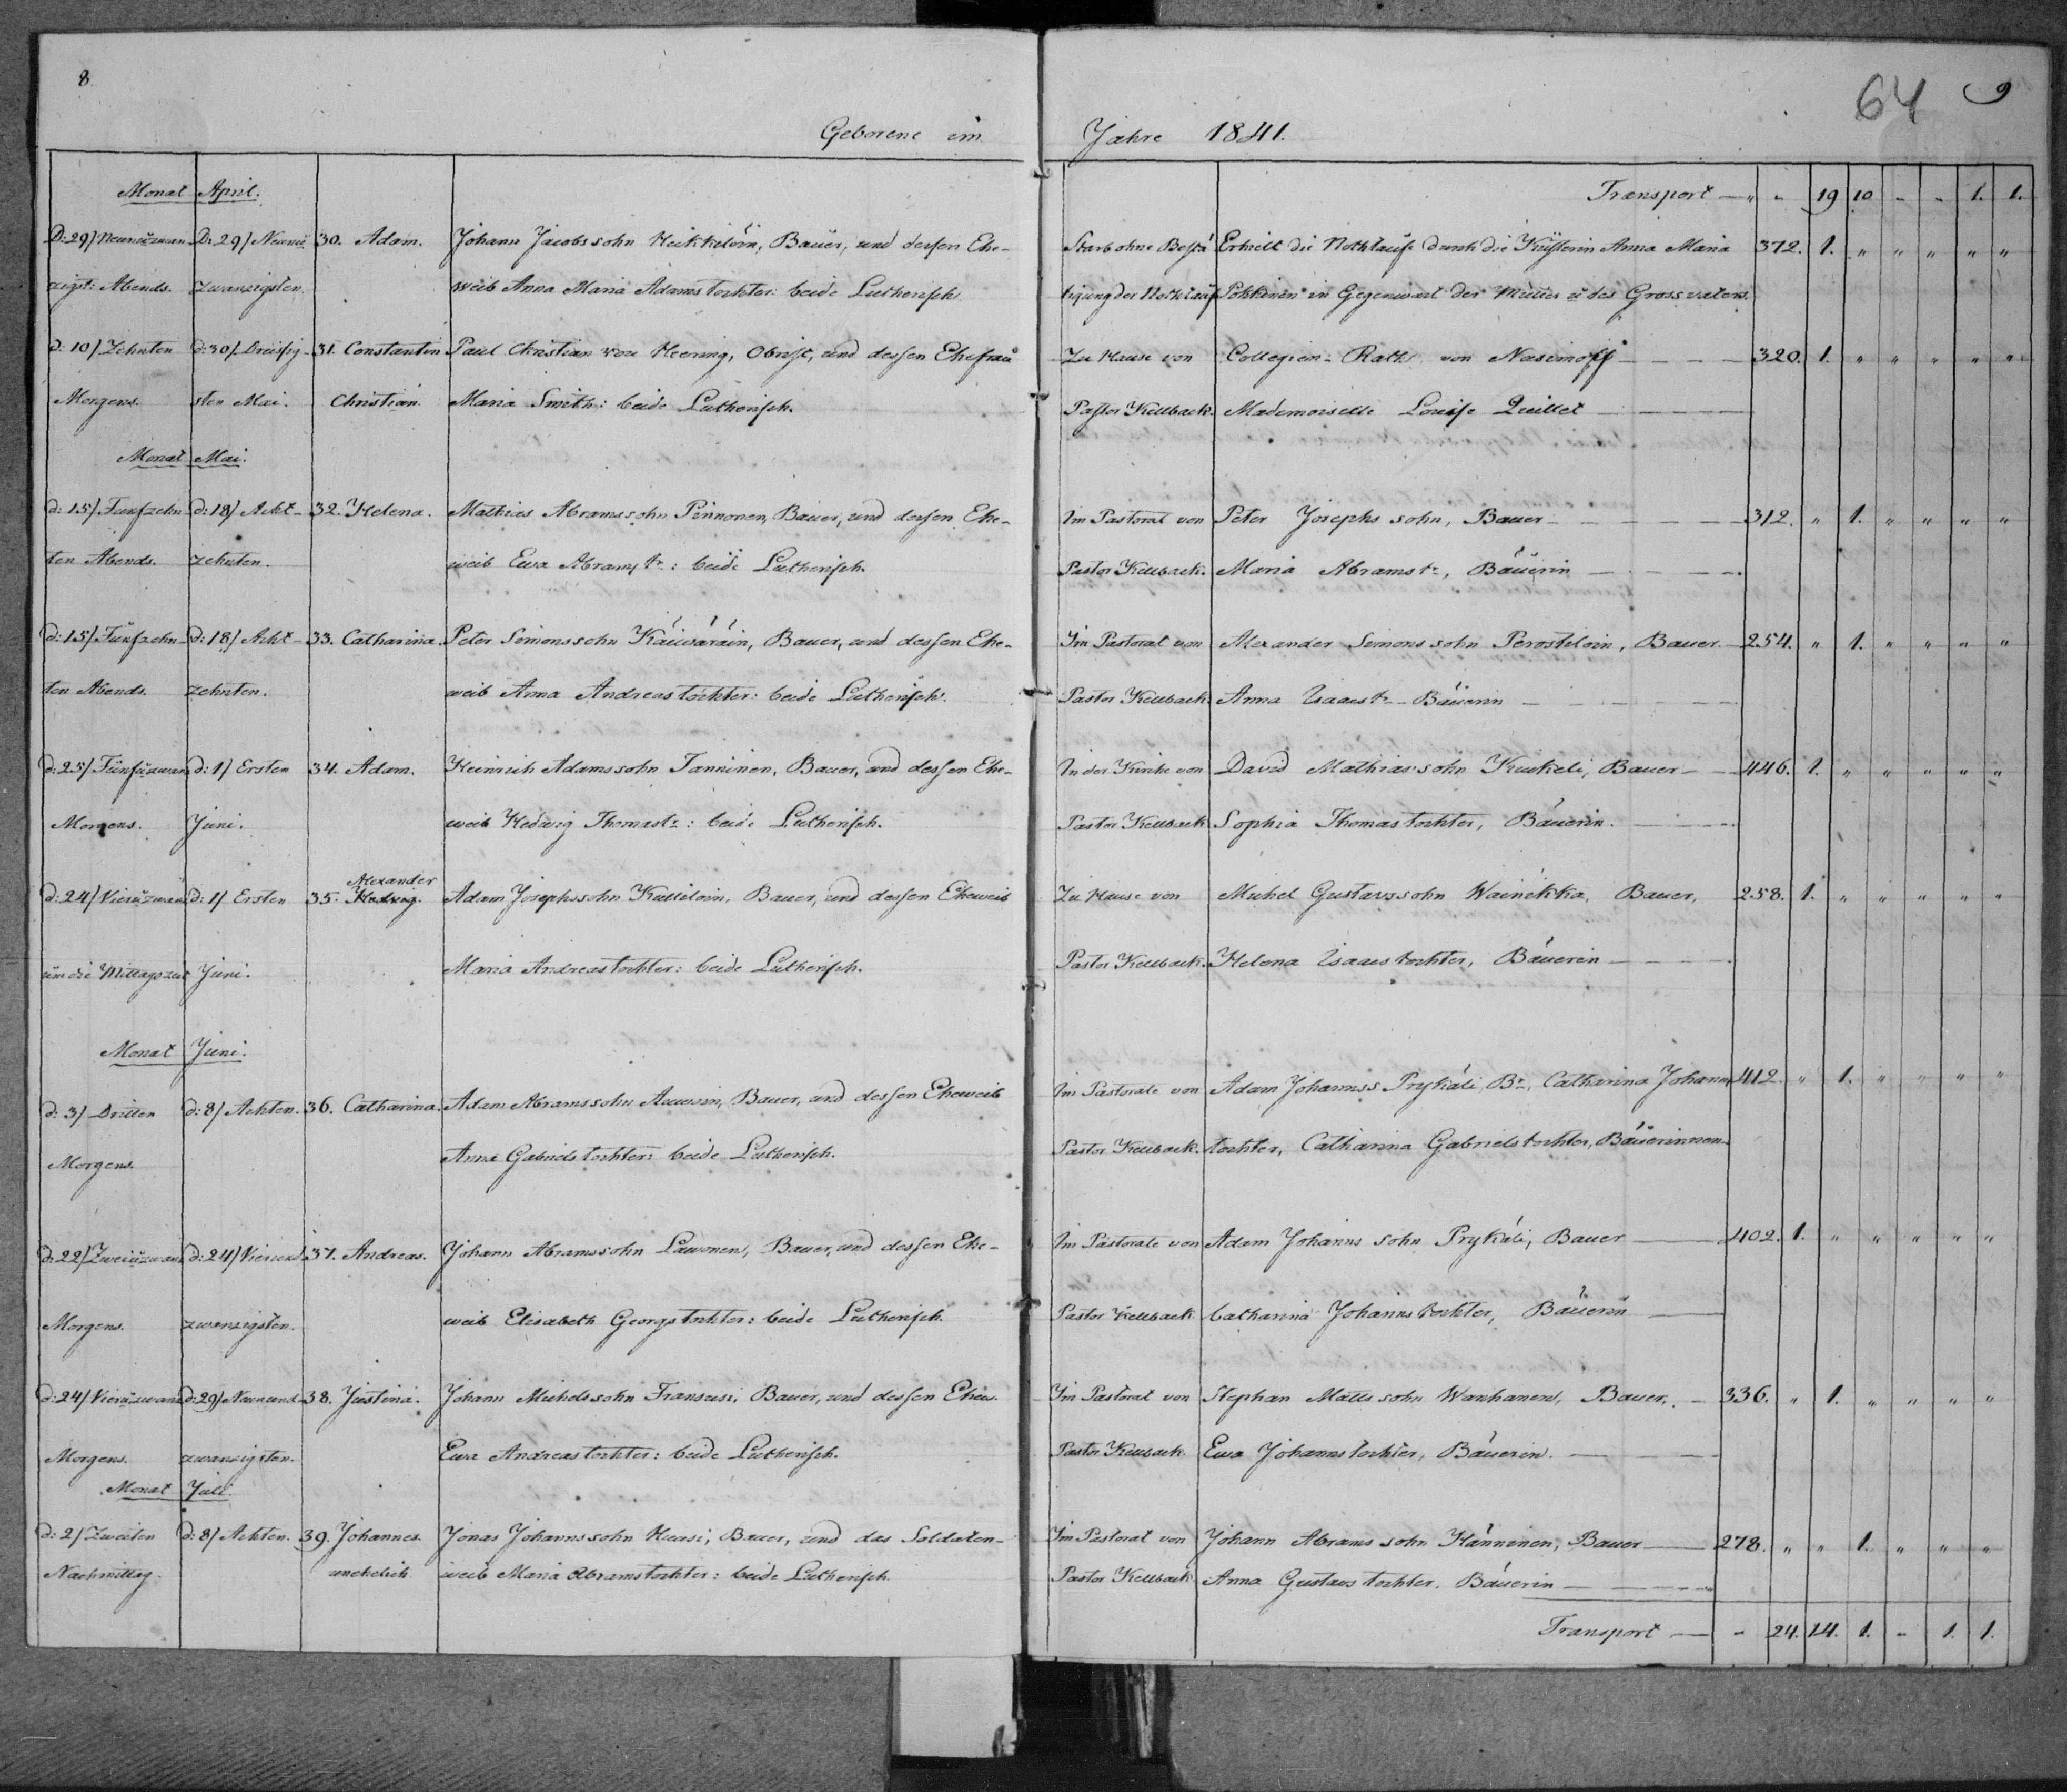 8
64 9
Geborene im Jahre 1841.
Monat April.
Transport — " " 19 10 " " 1. 1.
D: 29/ Neunuzwan D: 29/ Neunu 30. Adam. Johann Jacobssohn Heikkiloin, Bauer, und dessen Ehe- Starb ohne Bestä Erhielt die Nothtaufe durch die Küsterin Anna Maria 372. 1. " " " " "
zigst: Abends. zwanzigsten. weib Anna Maria Adamstochter: beide Lutherisch. tigung der Nothtauf Pohkonen in Gegenwart der Mutter u des Grossvaters.
d: 10/ Zehnten d: 30/ Dreissig- 31. Constantin Paul Christian von Heering, Obrist, und dessen Ehefrau Zu Hause von Collegien-Rath von Nasimoff 320. 1. " " " " "
Morgens. sten Mai. Christian. Maria Smith: beide Lutherisch. Pastor Kellback. Mademoiselle Louise Quillet
Monat Mai.
d: 15/ Fünfzehn d: 18/ Acht- 32. Helena. Mathias Abramssohn Pennonen, Bauer, und dessen Ehe- Im Pastorat von Peter Josephs sohn, Bauer 312. " 1. " " " "
ten Abends. zehnten. weib Ewa Abramstr: beide Lutherisch. Pastor Kellback. Maria Abramstr, Bäuerin
d: 15/ Fünfzehn d: 18/ Acht- 33. Catharina. Peter Simonssohn Käiwäräin, Bauer, und dessen Ehe- Im Pastorat von Alexander Simons sohn Perostiloin, Bauer. 254. " 1. " " " "
ten Abends. zehnten. weib Anna Andreastochter: beide Lutherisch. Pastor Kellback. Anna Isaacstr Bäuerin
d: 25/ Fünfuzwan d: 1/ Ersten 34. Adam. Heinrich Adamssohn Tanninen, Bauer, und dessen Ehe- In der Kirche von David Mathiassohn Kuukeli, Bauer 446. 1. " " " " "
Morgens. Juni. weib Hedwig Thomastr: beide Lutherisch. Pastor Kellback Sophia Thomastochter, Bäuerin.
Alexander
d: 24/ Vieruzwan d: 1/ Ersten 35. Hedwig. Adam Josephssohn Kulliloin, Bauer, und dessen Eheweib Zu Hause von Michel Gustavssohn Wainikka, Bauer, 258. 1. " " " " "
um die Mittagszeit Juni. Maria Andreastochter: beide Lutherisch. Pastor Kellback. Helena Isaacstochter, Bäuerin
Monat Juni.
d: 3/ Dritten d: 8/ Achten. 36. Catharina. Adam Abramssohn Auwin, Bauer, und dessen Eheweib Im Pastorate von Adam Johannss Prykäli Br, Catharina Johann 412. " 1. " " " "
Morgens. Anna Gabrielstochter: beide Lutherisch. Pastor Kellback. tochter, Catharina Gabrielstochter, Bäuerinnen
d: 22/ Zweiuzwan d: 24/ Vierund 37. Andreas. Johann Abramssohn Lawonen, Bauer, und dessen Ehe- Im Pastorate von Adam Johanns sohn Prykäli, Bauer 402. 1. " " " " "
Morgens. zwanzigsten. weib Elisabeth Georgstochter: beide Lutherisch. Pastor Kellback Catharina Johannstochter, Bäuerin
d: 24/ Vieruzwan d: 29/ Neunund 38. Justina. Johann Michelssohn Fransusi, Bauer, und dessen Ehew. Im Pastorat von Stephan Matts sohn Wanhanen, Bauer, 336. " 1. " " " "
Morgens. zwanzigsten. Ewa Andreastochter: beide Lutherisch. Pastor Kellback. Ewa Johannstochter, Bäuerin.
Monat Juli.
d: 2/ Zweiten d: 8/ Achten. 39. Johannes. Jonas Johannssohn Huusi, Bauer, und das Soldaten- Im Pastorat von Johann Abrams sohn Hänninen, Bauer 278. " " 1. " " "
Nachmittag. unehelich weib Maria Abramstochter: beide Lutherisch. Pastor Kellback Anna Gustavs tochter. Bäuerin
Transport — " 24. 14. 1. " 1. 1.